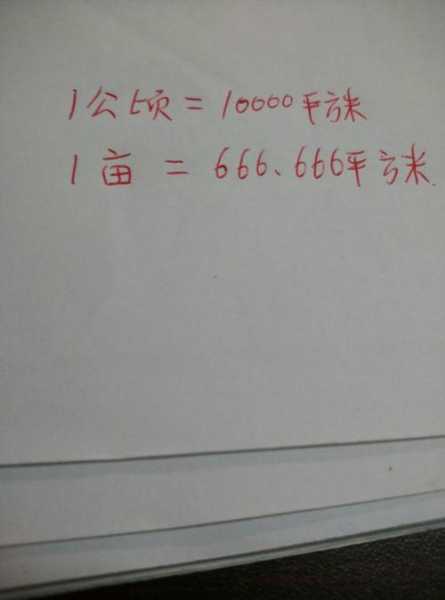 1公顷=10000平方米
1亩=666.666平方米.